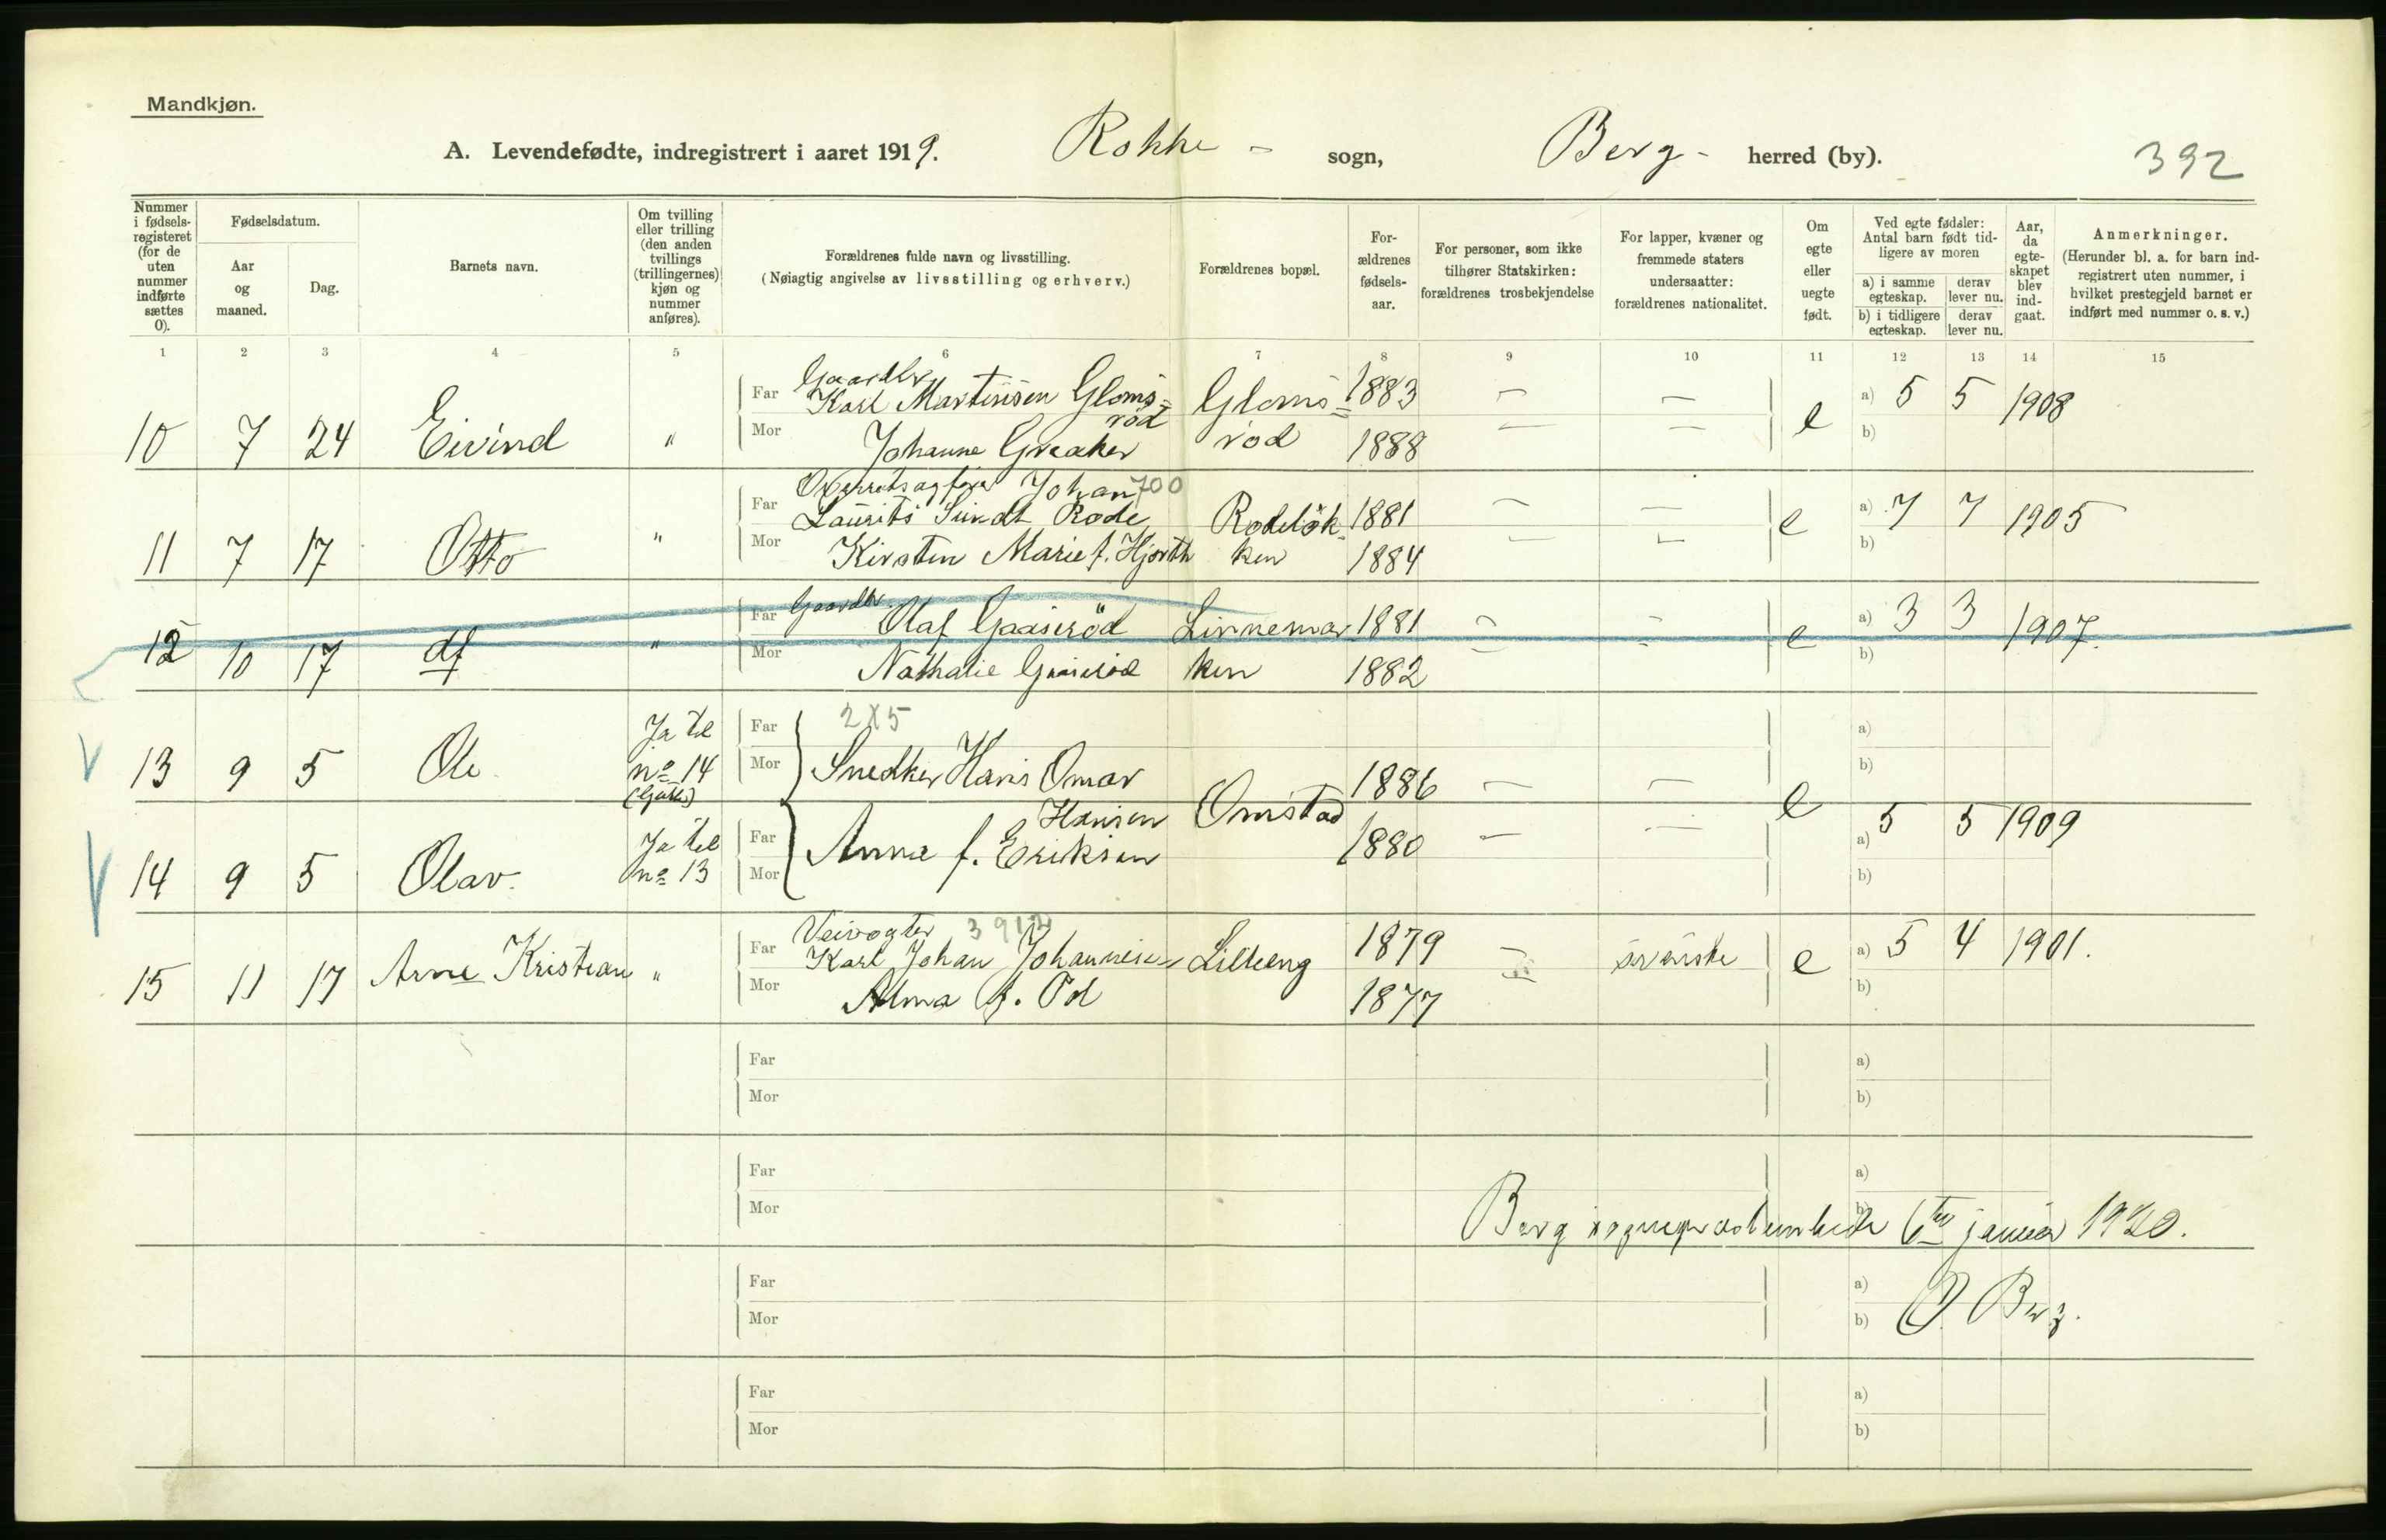 Mandkjøn.
A. Levendefødte, indregistrert i aaret 1919. Rokke - sogn, Berg - herred (by). 392
Nummer i fødselsregisteret (for de uten nummer indførte sættes 0).
Fødselsdatum.
Aar og maaned.
Dag.
Barnets navn.
Om tvilling eller trilling (den anden tvillings (trillingernes) kjøn og nummer anføres).
Forældrenes fulde navn og livsstilling.
(Nøiagtig angivelse av livsstilling og erhverv.)
Forældrenes bopæl.
Forældrenes fødselsaar.
For personer, som ikke tilhører Statskirken: forældrenes trosbekjendelse
For lapper, kvæner og fremmede staters undersaatter: forældrenes nationalitet.
Om egte eller uegte født.
Ved egte fødsler: Antal barn født tidligere av moren
a) i samme egteskap. derav lever nu.
b) i tidligere egteskap. derav lever nu.
Aar, da egteskapet blev indgaat.
Anmerkninger.
(Herunder bl. a. for barn indregistrert uten nummer, i hvilket prestegjeld barnet er indført med nummer o. s. v.)
1 2 3 4 5 6 7 8 9 10 11 12 13 14 15
Gaardbr.
Far Karl Martinsen Glomsrød Glomsrød 1883 — — a) 5 5 1908
10 7 24 Eivind " Mor Johanne Graaker 1888 — — e b)
Overretssagfører Johan 700
Far Laurits Sundt Rode Rodeløkken 1881 — — a) 7 7 1905
11 7 17 Otto " Mor Kirsten Marie f. Hjorth 1884 — — e b)
Gaardbr.
Far Olaf Gaaserød Linnemarken 1881 — — a) 3 3 1907.
12 10 17 df " Mor Nathalie Gaaserød 1882 — — e b)
2X5
Ja til Far a)
13 9 5 Ole no 14 Mor Snedker Hans Omar 1886 — — b)
Hansen Omstad e
Ja til Far 1880 — — a) 5 5 1909
14 9 5 Olav. no 13 Mor Anna f. Eriksen b)
Veivogter 3912
Far Karl Johan Johannesen Lilleeng 1879 — svenske e a) 5 4 1901.
15 11 17 Arne Kristian " Mor Alma f. Öd 1877 b)
Far a)
Mor b)
Far a)
Mor b)
Berg sogneprestembede 6te januar 1920.
Far a)
Mor b)
O. Berg.
Far a)
Mor b)